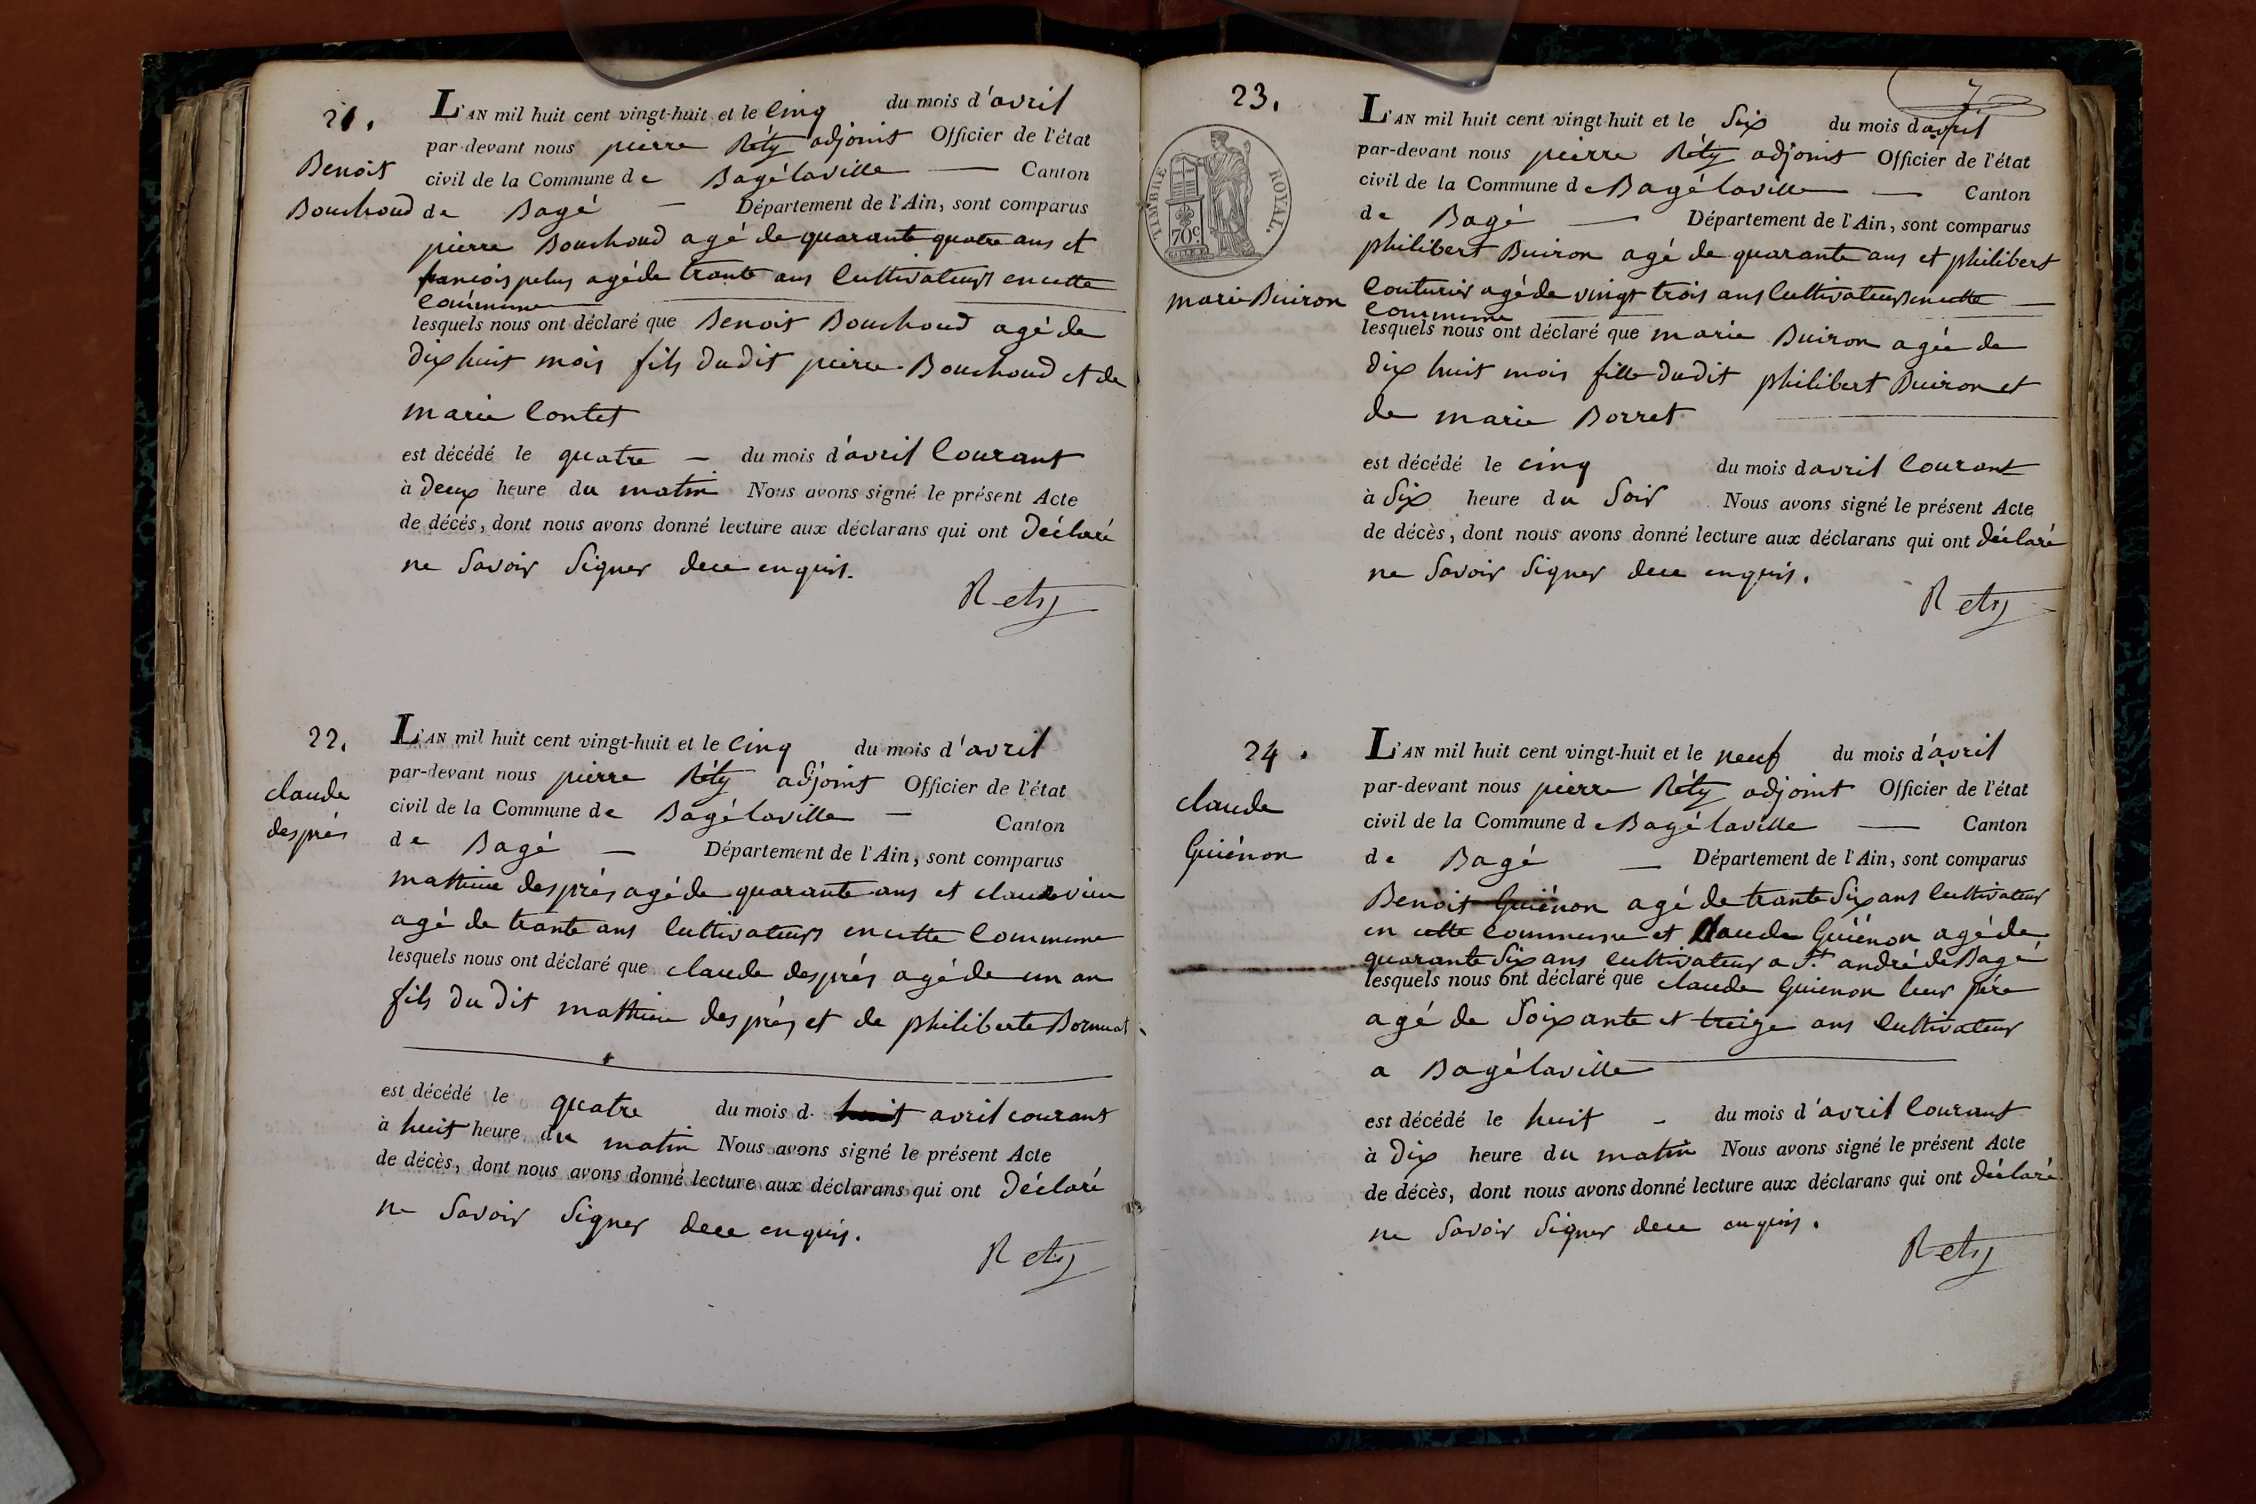 21.
Benoit
Bouchoud
L'AN mil huit cent vingt-huit et le cinq du mois d'avril
par-devant nous pierre Réty adjoint Officier de l'état
civil de la Commune de Bagélaville — Canton
de Bagé — Département de l'Ain, sont comparus
pierre Bouchoud agé de quarante quatre ans et
francois pelus agé de trante ans Cultivateurs en cette
Commune
lesquels nous ont déclaré que Benoit Bouchoud agé de
dix huit mois fils dudit pierre Bouchoud et de
marie Contet
est décédé le quatre — du mois d'avril Courant
à deux heure du matin Nous avons signé le présent Acte
de décès, dont nous avons donné lecture aux déclarans qui ont déclaré
ne Savoir Signer dece enquis.
Rety
22.
claude
després
L'AN mil huit cent vingt-huit et le cinq du mois d'avril
par-devant nous pierre Réty adjoint Officier de l'état
civil de la Commune de Bagélaville — Canton
de Bagé — Département de l'Ain, sont comparus
mathieu després agé de quarante ans et claude
agé de trante ans Cultivateurs en cette Commune
lesquels nous ont déclaré que claude després agé de un an
fils du dit mathieu després et de philiberte
est décédé le quatre du mois d. huit avril courant
à huit heure du matin Nous avons signé le présent Acte
de décès, dont nous avons donné lecture aux déclarans qui ont déclaré
ne Savoir Signer dece enquis.
Rety
7
23.
TIMBRE ROYAL.
70c
marie Buiron
L'AN mil huit cent vingt-huit et le Six du mois davril
par-devant nous pierre Réty adjoint Officier de l'état
civil de la Commune de Bagélaville — Canton
de Bagé — Département de l'Ain, sont comparus
philibert Buiron agé de quarante ans et philibert
Couturier agé de vingt trois ans Cultivateurs en cette —
Commune
lesquels nous ont déclaré que marie Buiron agée de
dix huit mois fille dudit philibert Buiron et
de marie Borret
est décédé le cinq du mois davril Courant
à Six heure du Soir Nous avons signé le présent Acte
de décès, dont nous avons donné lecture aux déclarans qui ont déclaré
ne Savoir Signer dece enquis.
Rety
24.
claude
Guiénon
L'AN mil huit cent vingt-huit et le neuf du mois d'avril
par-devant nous pierre Réty adjoint Officier de l'état
civil de la Commune de Bagélaville — Canton
de Bagé — Département de l'Ain, sont comparus
Benoit Guiénon agé de trante Six ans Cultivateur
en cette Commune et Claude Guiénon agé de
quarante Six ans Cultivateur a St. andré de Bagé
lesquels nous ont déclaré que claude Guiénon leur père
agé de Soixante et treize ans Cultivateur
a Bagélaville
est décédé le huit — du mois d'avril Courant
à dix heure du matin Nous avons signé le présent Acte
de décès, dont nous avons donné lecture aux déclarans qui ont déclaré
ne Savoir Signer dece enquis.
Rety